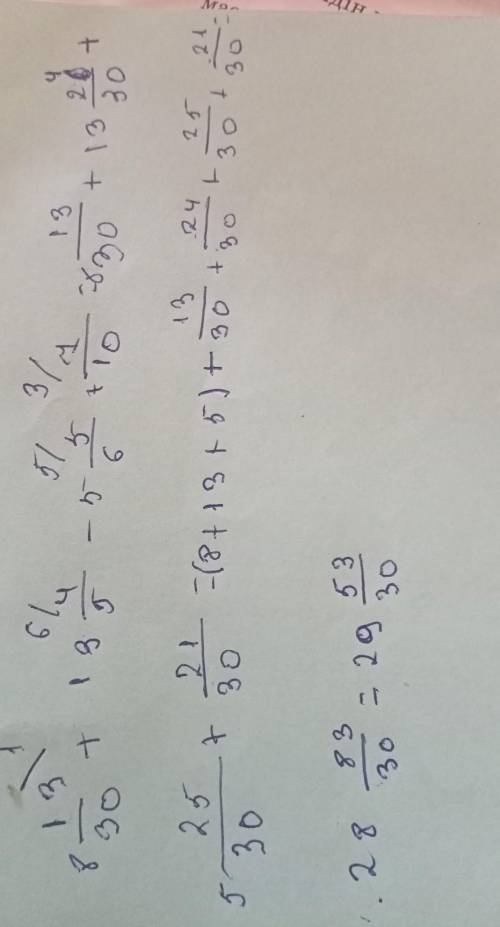 8 13/30 + 13 4/5 - 5 5/6 + 7/10 = 8 13/30 + 13 24/30 +
1 6/ 5/ 3/
5 25/30 + 21/30 = (8 + 13 + 5) + 13/30 + 24/30 + 25/30 + 21/30 =
28 83/30 = 29 53/30